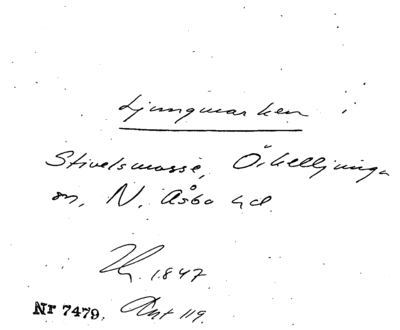 Ljungmarken i
Stivelsmosse, Örkelljunga
sn, N. Åsbo hd.
1847.
Nr 7479. Ant 119.